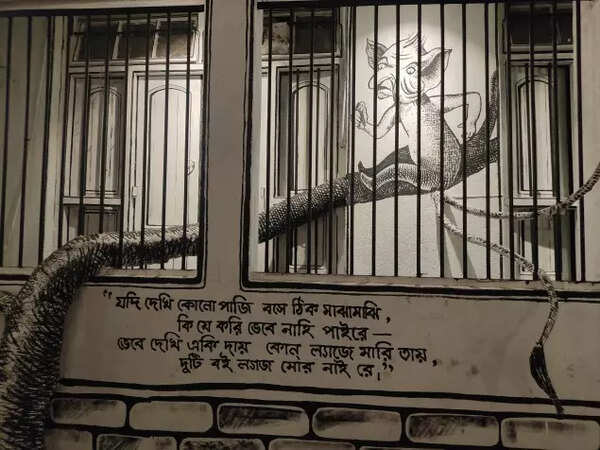 "যদি দেখি কোনো পাজি বসে ঠিক মাঝামাঝি,
কি যে করি ভেবে নাহি পাইরে —
ভেবে দেখি একি দায় কোন্ ল্যাজে মারি তায়,
দুটি বই ল্যাজ মোর নাই রে।"